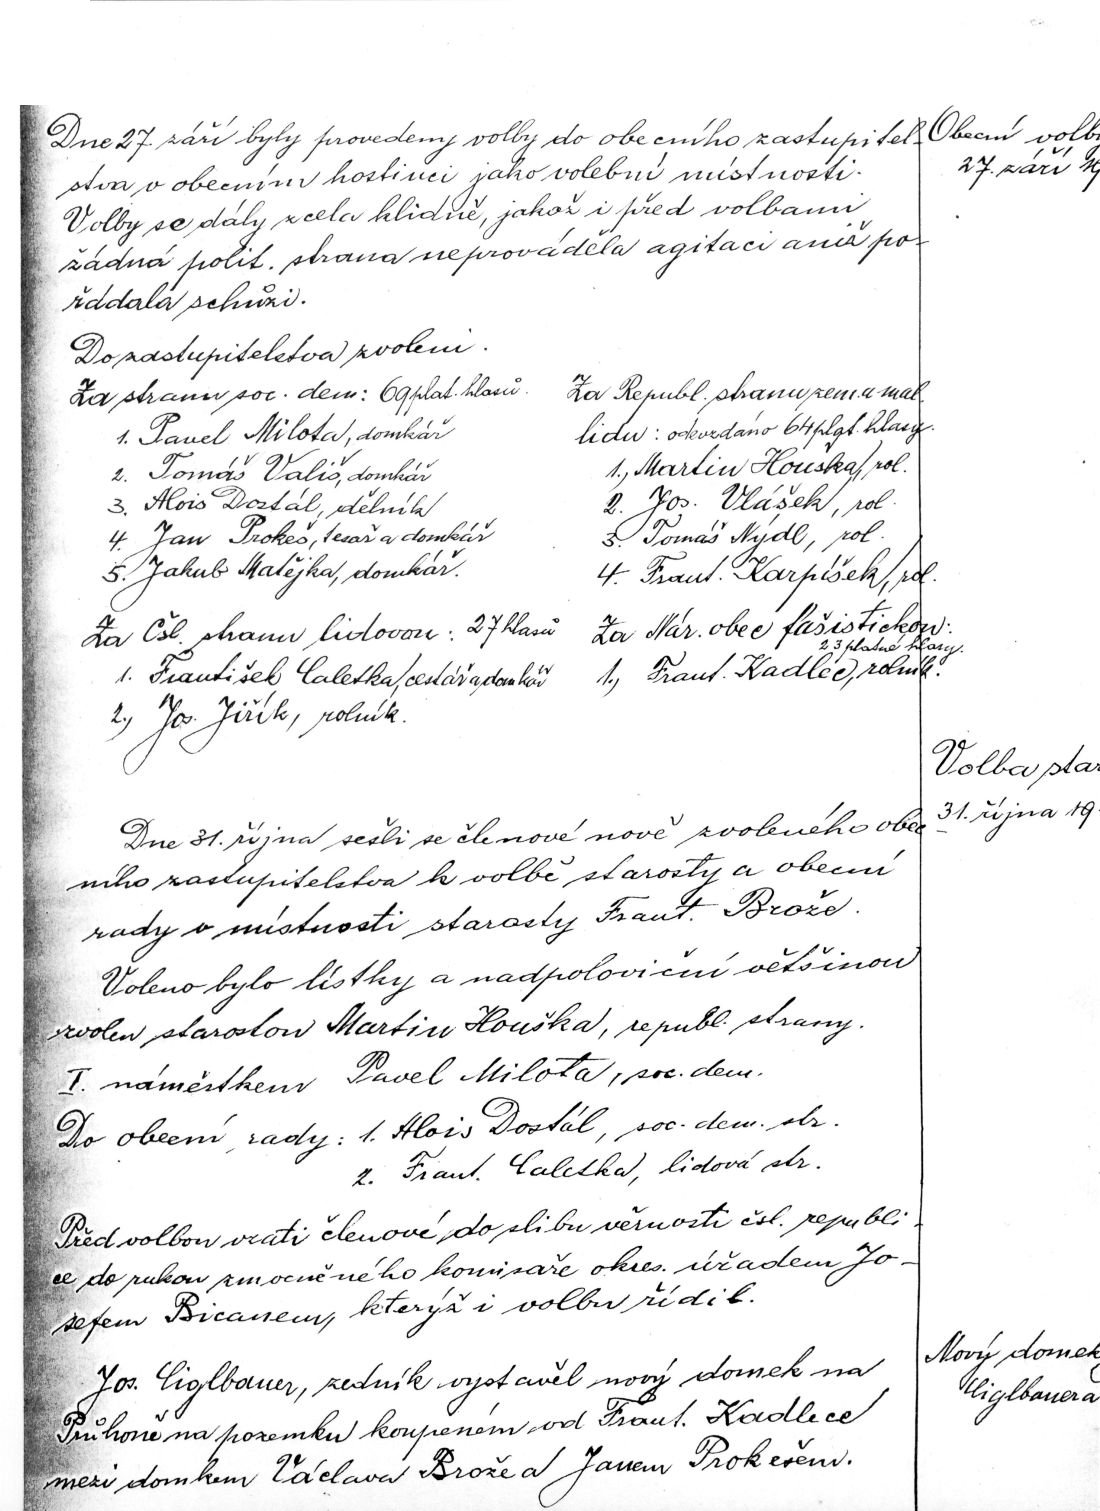 Dne 27. září byly provedeny volby do obecního zastupitel-
stva v obecním hostinci jako volební místnosti.
Volby se dály zcela klidně, jakož i před volbami
žádná polit. strana neprováděla agitaci aniž po-
řádala schůzi.
Obecní volby
27. září
Do zastupitelstva zvoleni.
Za stranu soc. dem: 69 plat. hlasů.
1. Pavel Milota, domkář
2. Tomáš Vališ, domkář
3. Alois Dostál, dělník
4. Jan Prokeš, tesař a domkář
5. Jakub Matějka, domkář.
Za Repupl. stranu zem. a mal.
lidu: odevzdáno 64 plat. hlasy.
1., Martin Houška, rol.
2. Jos. Vlášek, rol.
3. Tomáš Nýdl, rol.
4. Frant. Karpíšek, rol.
Za Čsl. stranu lidovou: 27 hlasů
1. František Caletka, cestář a domkář
2., Jos. Jiřík, rolník.
Za Nár. obec fašistickou:
23 platné hlasy.
1., Frant. Kadlec, rolník.
Volba star
31. října 19
Dne 31. října sešli se členové nově zvoleného obec
ního zastupitelstva k volbě starosty a obecní
rady v místnosti starosty Frant. Brože.
Voleno bylo lístky a nadpoloviční většinou
zvolen starostou Martin Houška, republ. strany.
I. náměstkem Pavel Milota, soc. dem.
Do obecní rady: 1. Alois Dostál, soc. dem. str.
2. Frant. Caletka, lidová str.
Před volbou vzati členové do slibu věrnosti čsl. republi-
ce do rukou zmocněného komisaře okres. úřadem Jo-
sefem Bicanem, kterýž i volbu řídil.
Jos. Ciglbauer, zedník vystavěl nový domek na
Průhoně na pozemku koupeném od Frant. Kadlece
mezi domkem Václava Brože a Janem Prokešem.
Nový domek
Ciglbauera